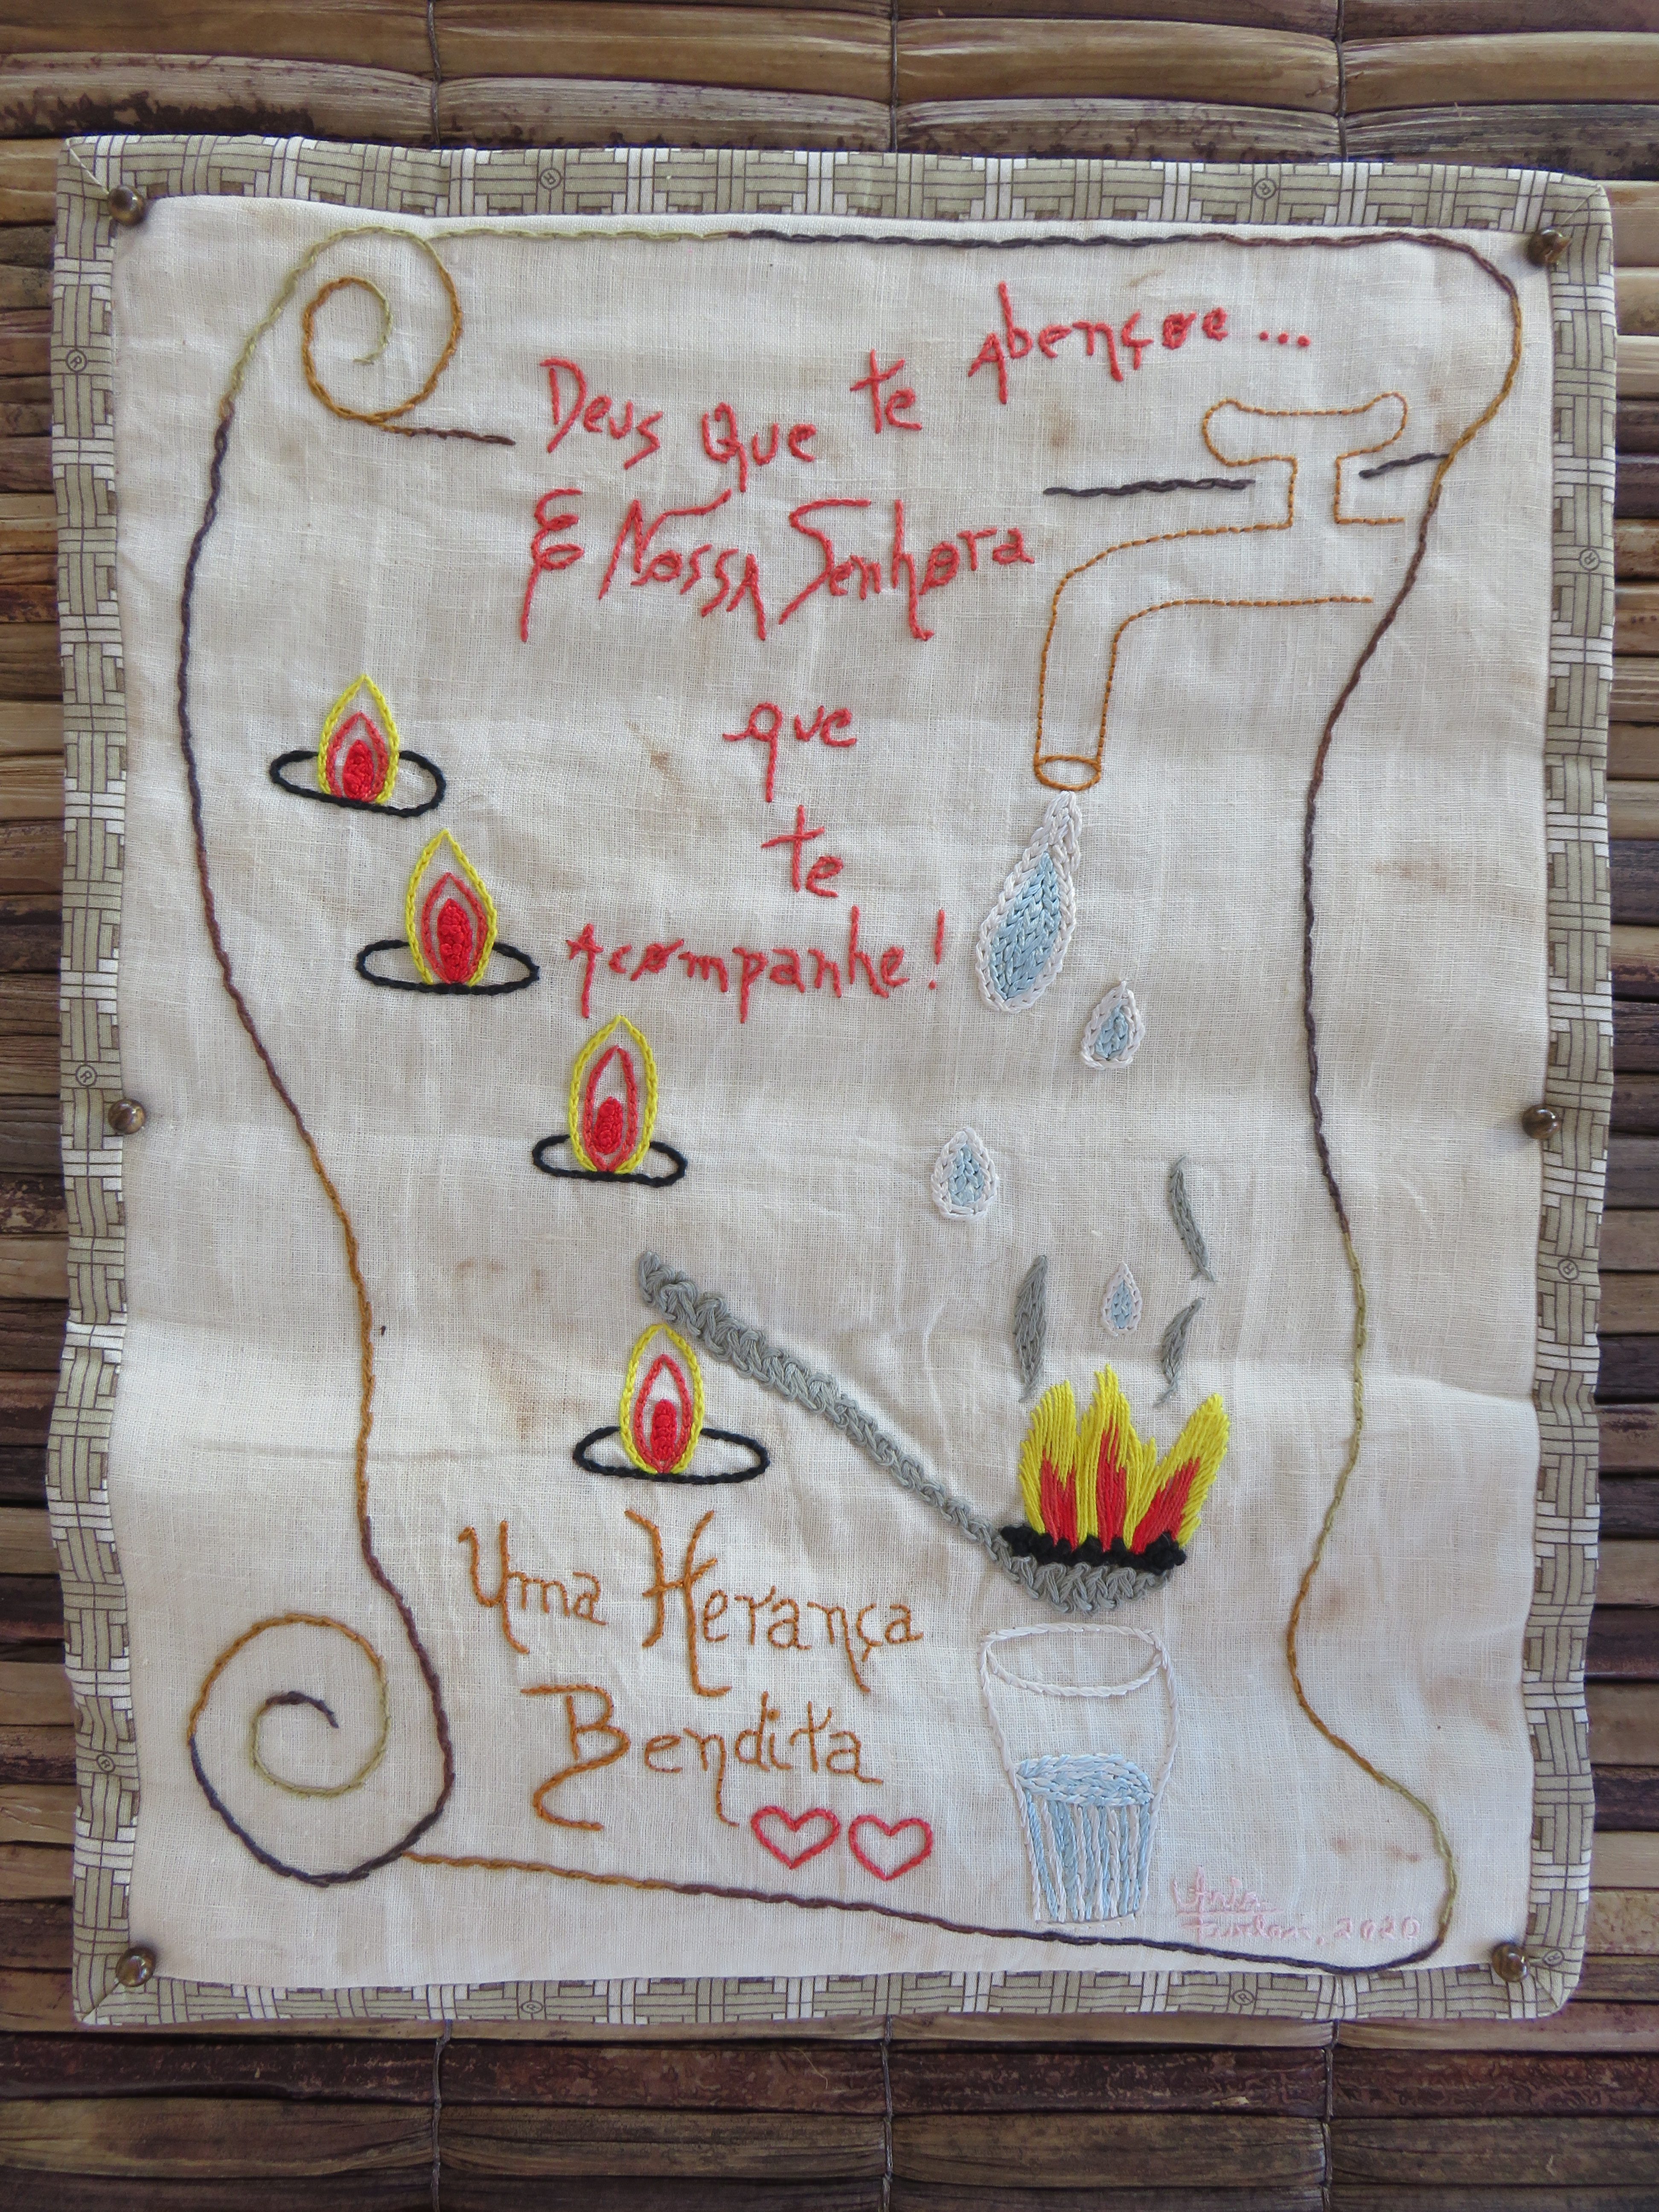 Deus que te Abençoe...
E Nossa Senhora
que
te
Acompanhe!
Uma Herança
Bendita
2020